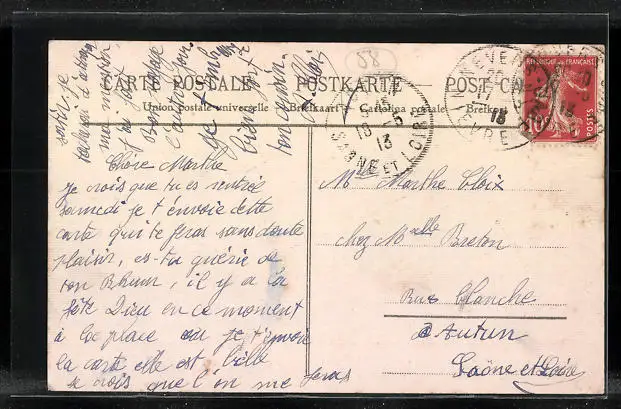 CARTE POSTALE
POSTKARTE
POST CA
Union postale universelle – Briefkaart – Cartolina postale – Brefkort
58
SAONE ET LOIRE
18-5
13
NEVERS
NIEVRE
13
REPUBLIQUE FRANCAISE
10c
POSTES
Chère Marthe
je crois que tu es rentrée
samedi je t envoie cette
carte qui te feras sans doute
plaisir, es-tu guérie de
ton Rhum, il y a la
fête Dieu en ce moment
à la place ou je t'envoie
la carte elle est belle
je crois que l'on me feras
sortir je
ma mission
ton cousin
Mlle Marthe Cloix
chez Melle Breton
Rue blanche
à Autun
Saône et Loire